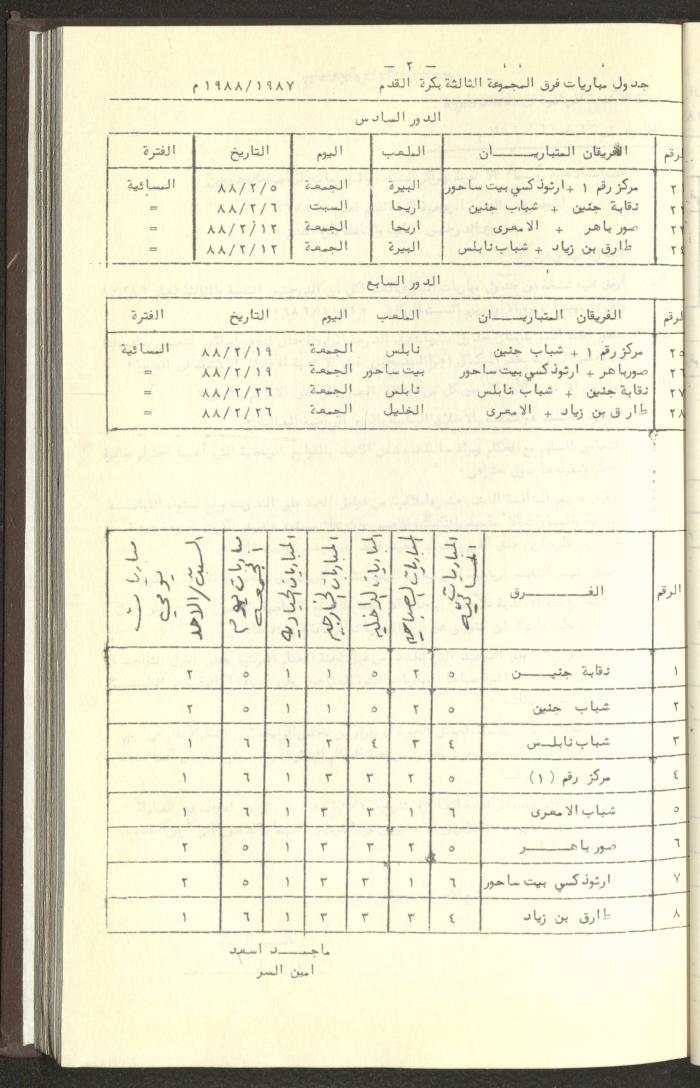 - ٢ -
جدول مباريات فرق المجموعة الثالثة بكرة القدم ١٩٨٨/١٩٨٧ م
الدور السادس
الرقم الفريقان المتباريــــان الملعب اليوم التاريخ الفترة
٢١ مركز رقم ١ + ارثوذكسي بيت ساحور البيرة الجمعة ٨٨/٢/٥ المسائية
٢٢ نقابة جنين + شباب جنين اريحا السبت ٨٨/٢/٦ =
٢٣ صور باهر + الامعرى اريحا الجمعة ٨٨/٢/١٢ =
٢٤ طارق بن زياد + شباب نابلس البيرة الجمعة ٨٨/٢/١٢ =
الدور السابع
الرقم الفريقان المتباريــــان الملعب اليوم التاريخ الفترة
٢٥ مركز رقم ١ + شباب جنين نابلس الجمعة ٨٨/٢/١٩ المسائية
٢٦ صورباهر + ارثوذكسي بيت ساحور بيت ساحور الجمعة ٨٨/٢/١٩ =
٢٧ نقابة جنين + شباب نابلس نابلس الجمعة ٨٨/٢/٢٦ =
٢٨ طارق بن زياد + الامعرى الخليل الجمعة ٨٨/٢/٢٦ =
الرقم الفــــرق المباريات المسائية المباريات الصباحية المباريات الداخلية المباريات الخارجية المباريات الحيادية مباريات يوم الجمعة مباريات يومي السبت/الاحد
١ نقابة جنيــــن ٥ ٢ ٥ ١ ١ ٥ ٢
٢ شباب جنين ٥ ٢ ٥ ١ ١ ٥ ٢
٣ شباب نابلــس ٤ ٣ ٤ ٢ ١ ٦ ١
٤ مركز رقم (١) ٥ ٢ ٣ ٣ ١ ٦ ١
٥ شباب الامعرى ٦ ١ ٣ ٣ ١ ٦ ١
٦ صور باهــــر ٥ ٢ ٣ ٣ ١ ٥ ٢
٧ ارثوذكسي بيت ساحور ٦ ١ ٣ ٣ ١ ٥ ٢
٨ طارق بن زياد ٤ ٣ ٣ ٣ ١ ٦ ١
ماجـــد اسعيد
امين السر